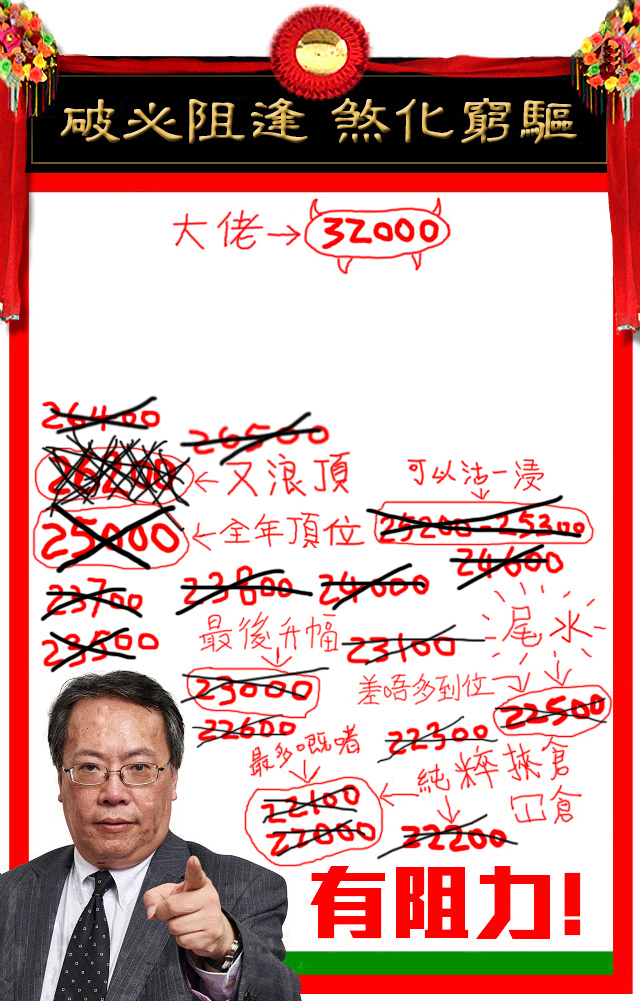 破必阻逢 煞化窮驅
大佬→32000
26400
26500
26200←又浪頂
可以沽一浸
25000←全年頂位
25200-25300
24600
23700
23800
24000
23500
最後升幅
23100
尾水
23000
差唔多到位
22500
22600
22300
最多嘅者
22100
22000
純粹挾倉
冚倉
22200
有阻力!